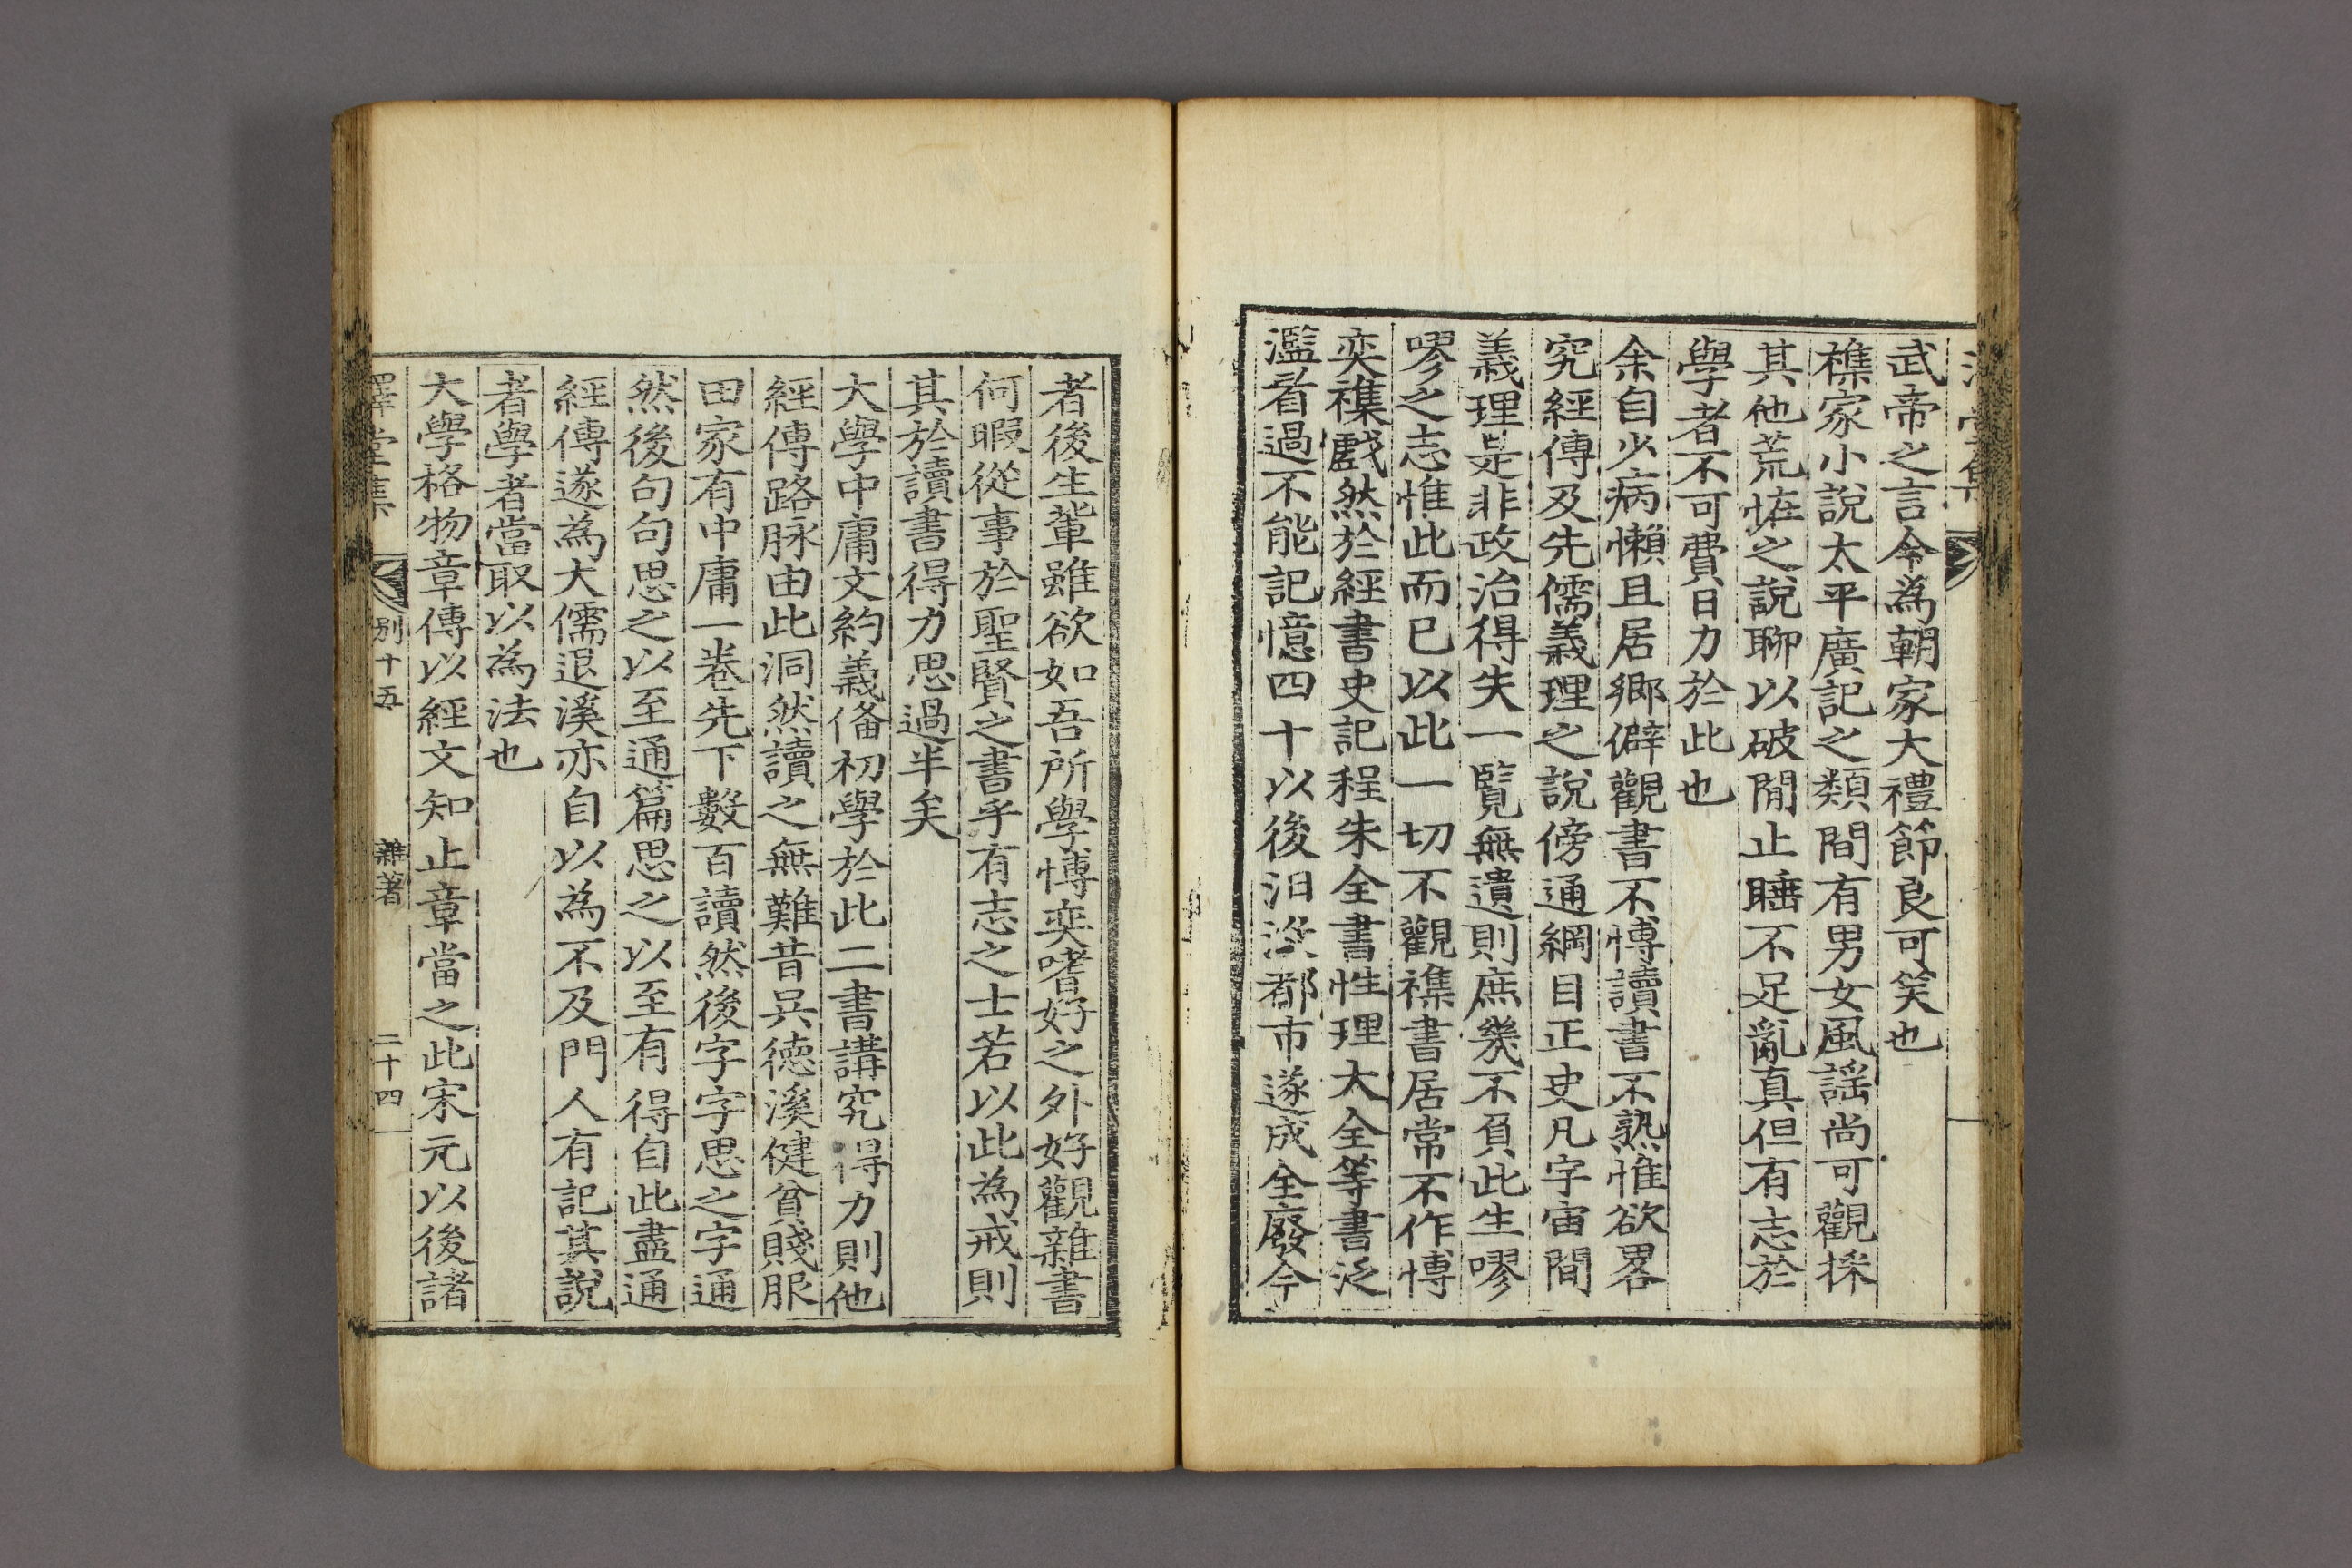 武帝之言今為朝家大禮節良可笑也
襍家小說太平廣記之類間有男女風謡尚可觀採
其他荒恠之說聊以破閒止睡不足亂真但有志於
學者不可費日力於此也
余自少病懶且居鄉僻觀書不博讀書不熟惟欲畧
究經傳及先儒義理之說傍通綱目正史凡宇宙間
義理是非政治得失一覧無遺則庶幾不負此生嘐
嘐之志惟此而已以此一切不觀襍書居常不作博
奕襍戱然於經書史記程朱全書性理大全等書泛
濫看過不能記憶四十以後汨沒都市遂成全廢今
者後生輩雖欲如吾所學博奕嗜好之外好觀雜書
何暇從事於聖賢之書乎有志之士若以此為戒則
其於讀書得力思過半矣
大學中庸文約義俻初學於此二書講究得力則他
經傳路脉由此洞然讀之無難昔吳德溪健貧賤服
田家有中庸一卷先下數百讀然後字字思之字通
然後句句思之以至通篇思之以至有得自此盡通
經傳遂為大儒退溪亦自以為不及門人有記其說
者學者當取以為法也
大學格物章傳以經文知止章當之此宋元以後諸
澤堂集 別十五 雜著 二十四